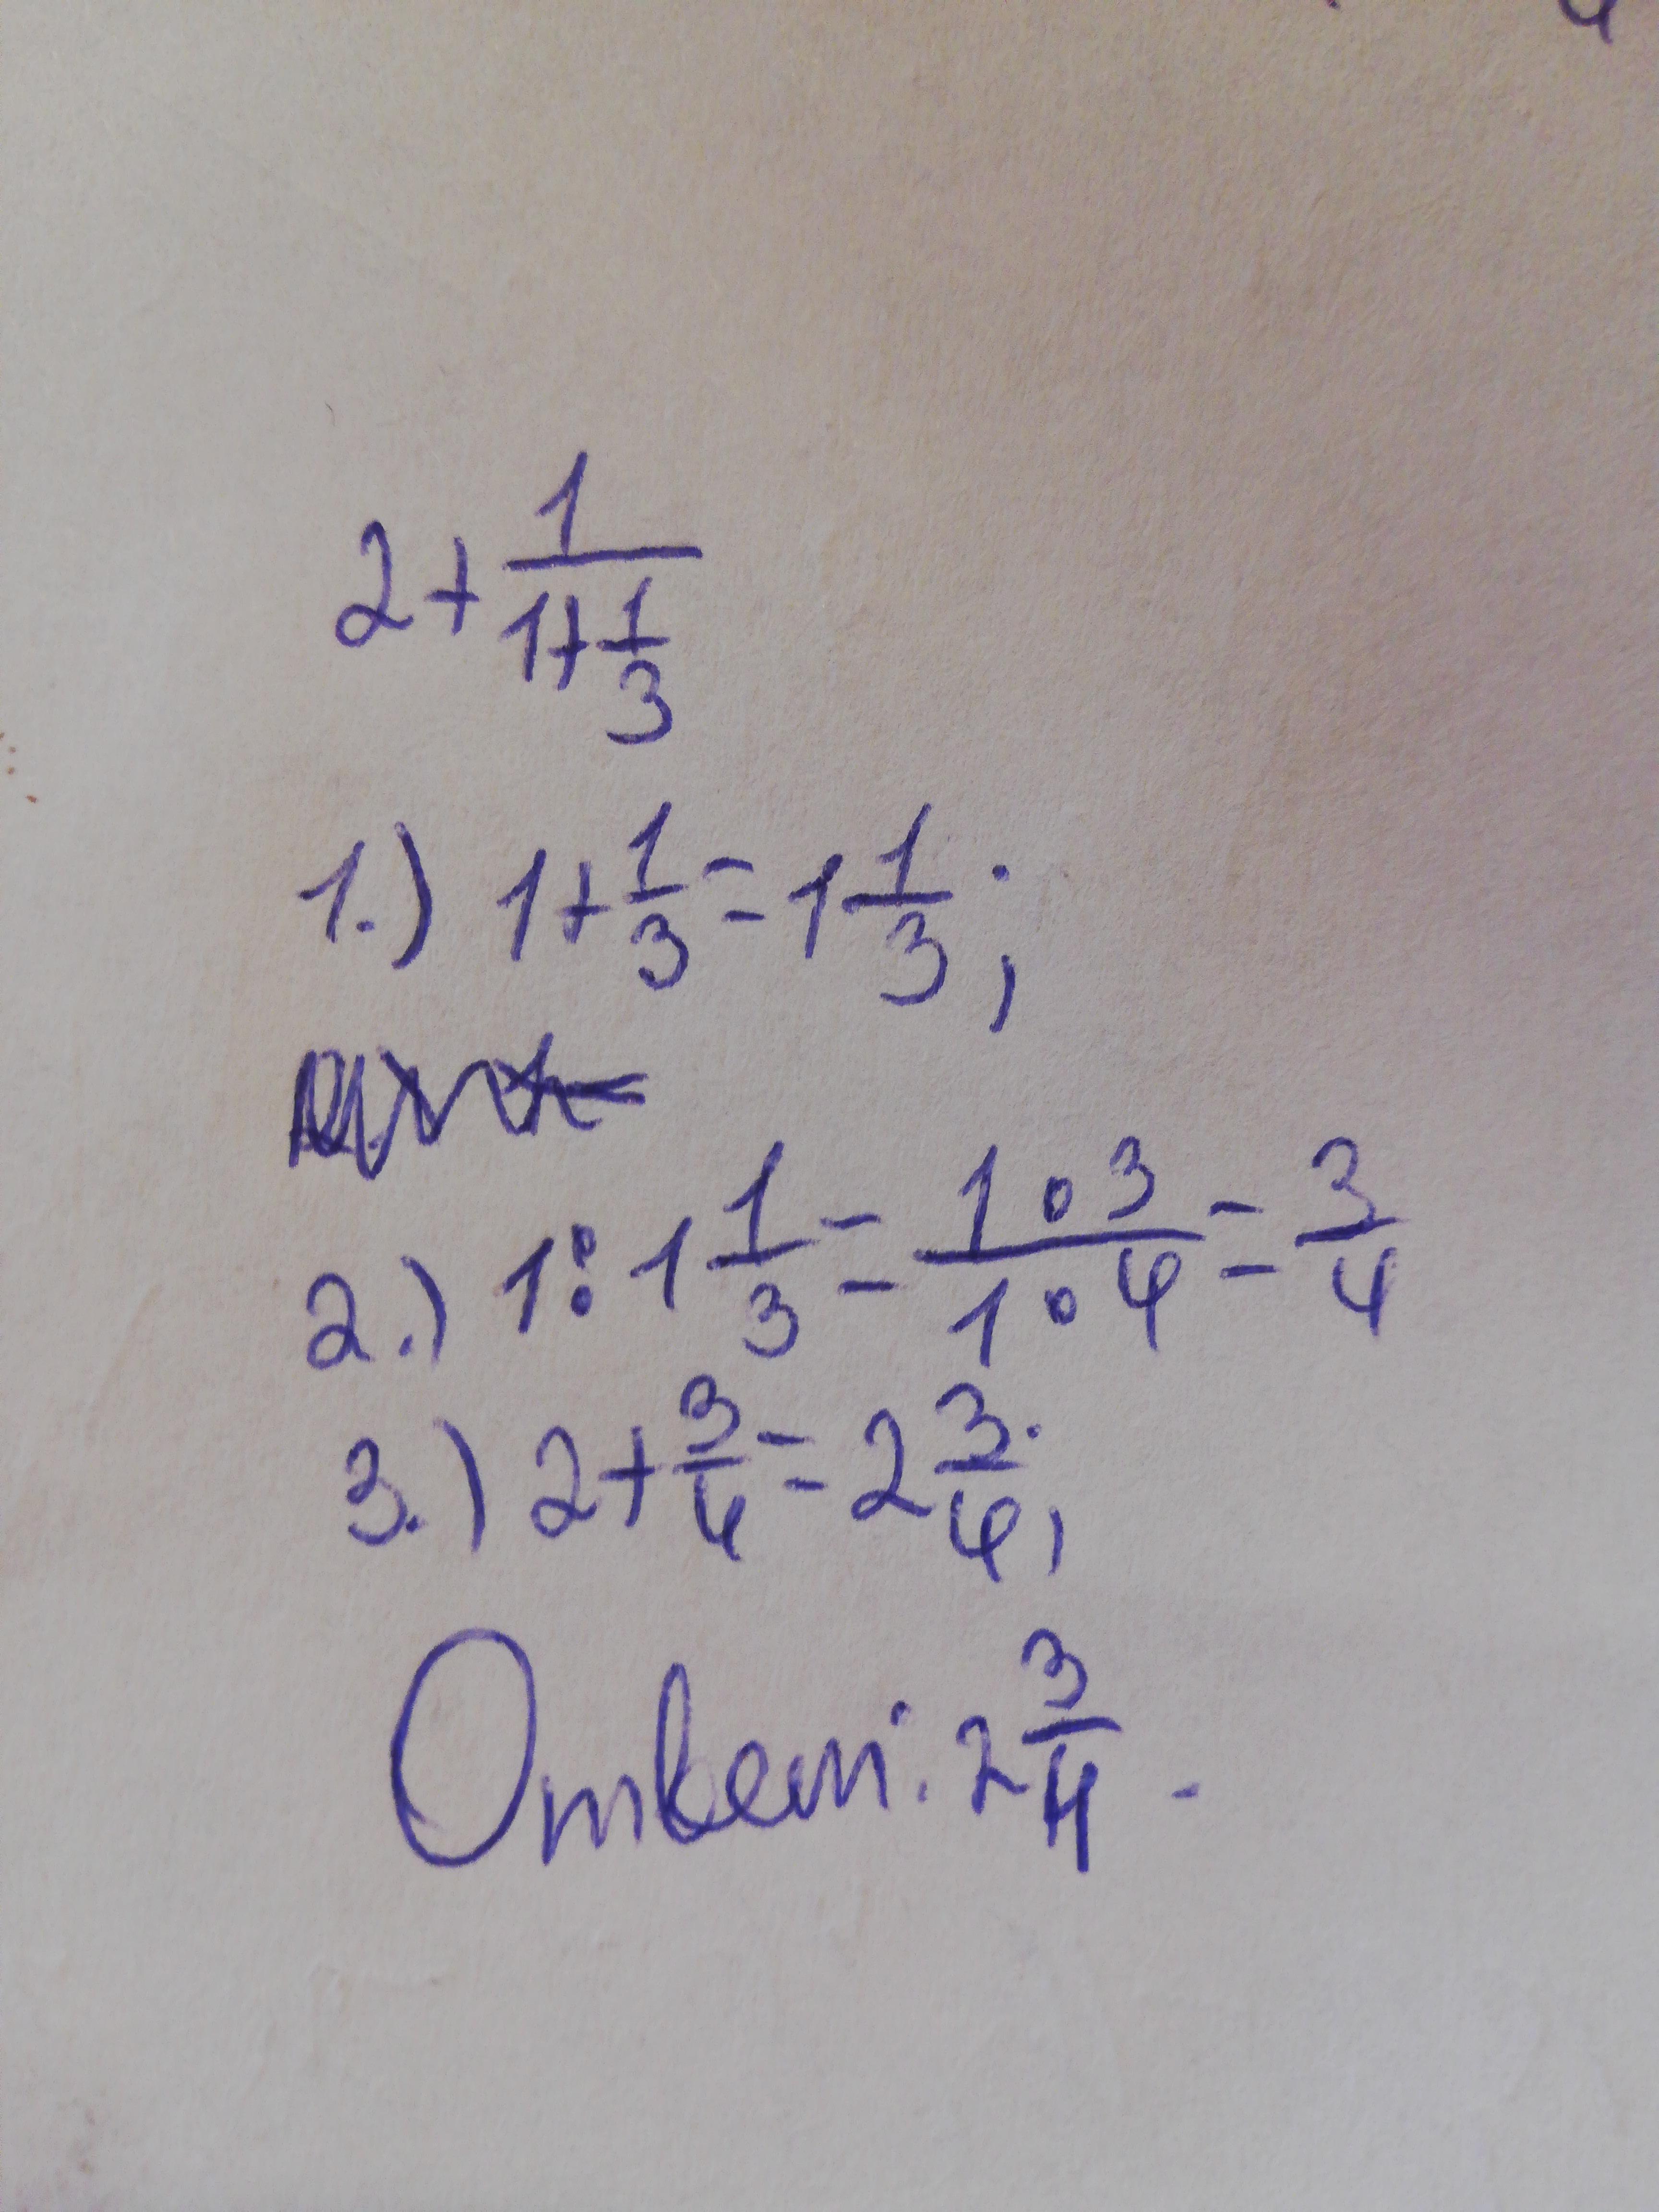 2+1/(1+1/3)
1.) 1+1/3=1 1/3;
2.) 1:1 1/3=(1·3)/(1·4)=3/4
3.) 2+3/4=2 3/4;
Ответ: 2 3/4.